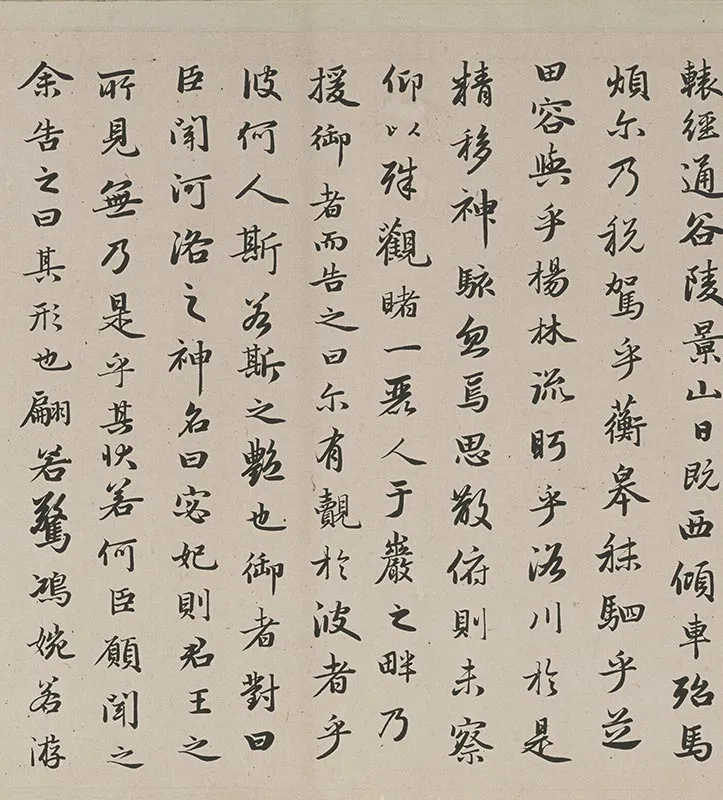 轅經通谷陵景山日既西傾車殆馬
煩尔乃税駕乎蘅皋秣駟乎芝
田容與乎楊林流眄乎洛川於是
精移神駭忽焉思散俯則未察
仰以殊觀睹一麗人于巖之畔乃
援御者而告之曰尔有覿於彼者乎
彼何人斯若斯之艷也御者對曰
臣聞河洛之神名曰宓妃則君王之
所見無乃是乎其狀若何臣願聞之
余告之曰其形也翩若驚鴻婉若游